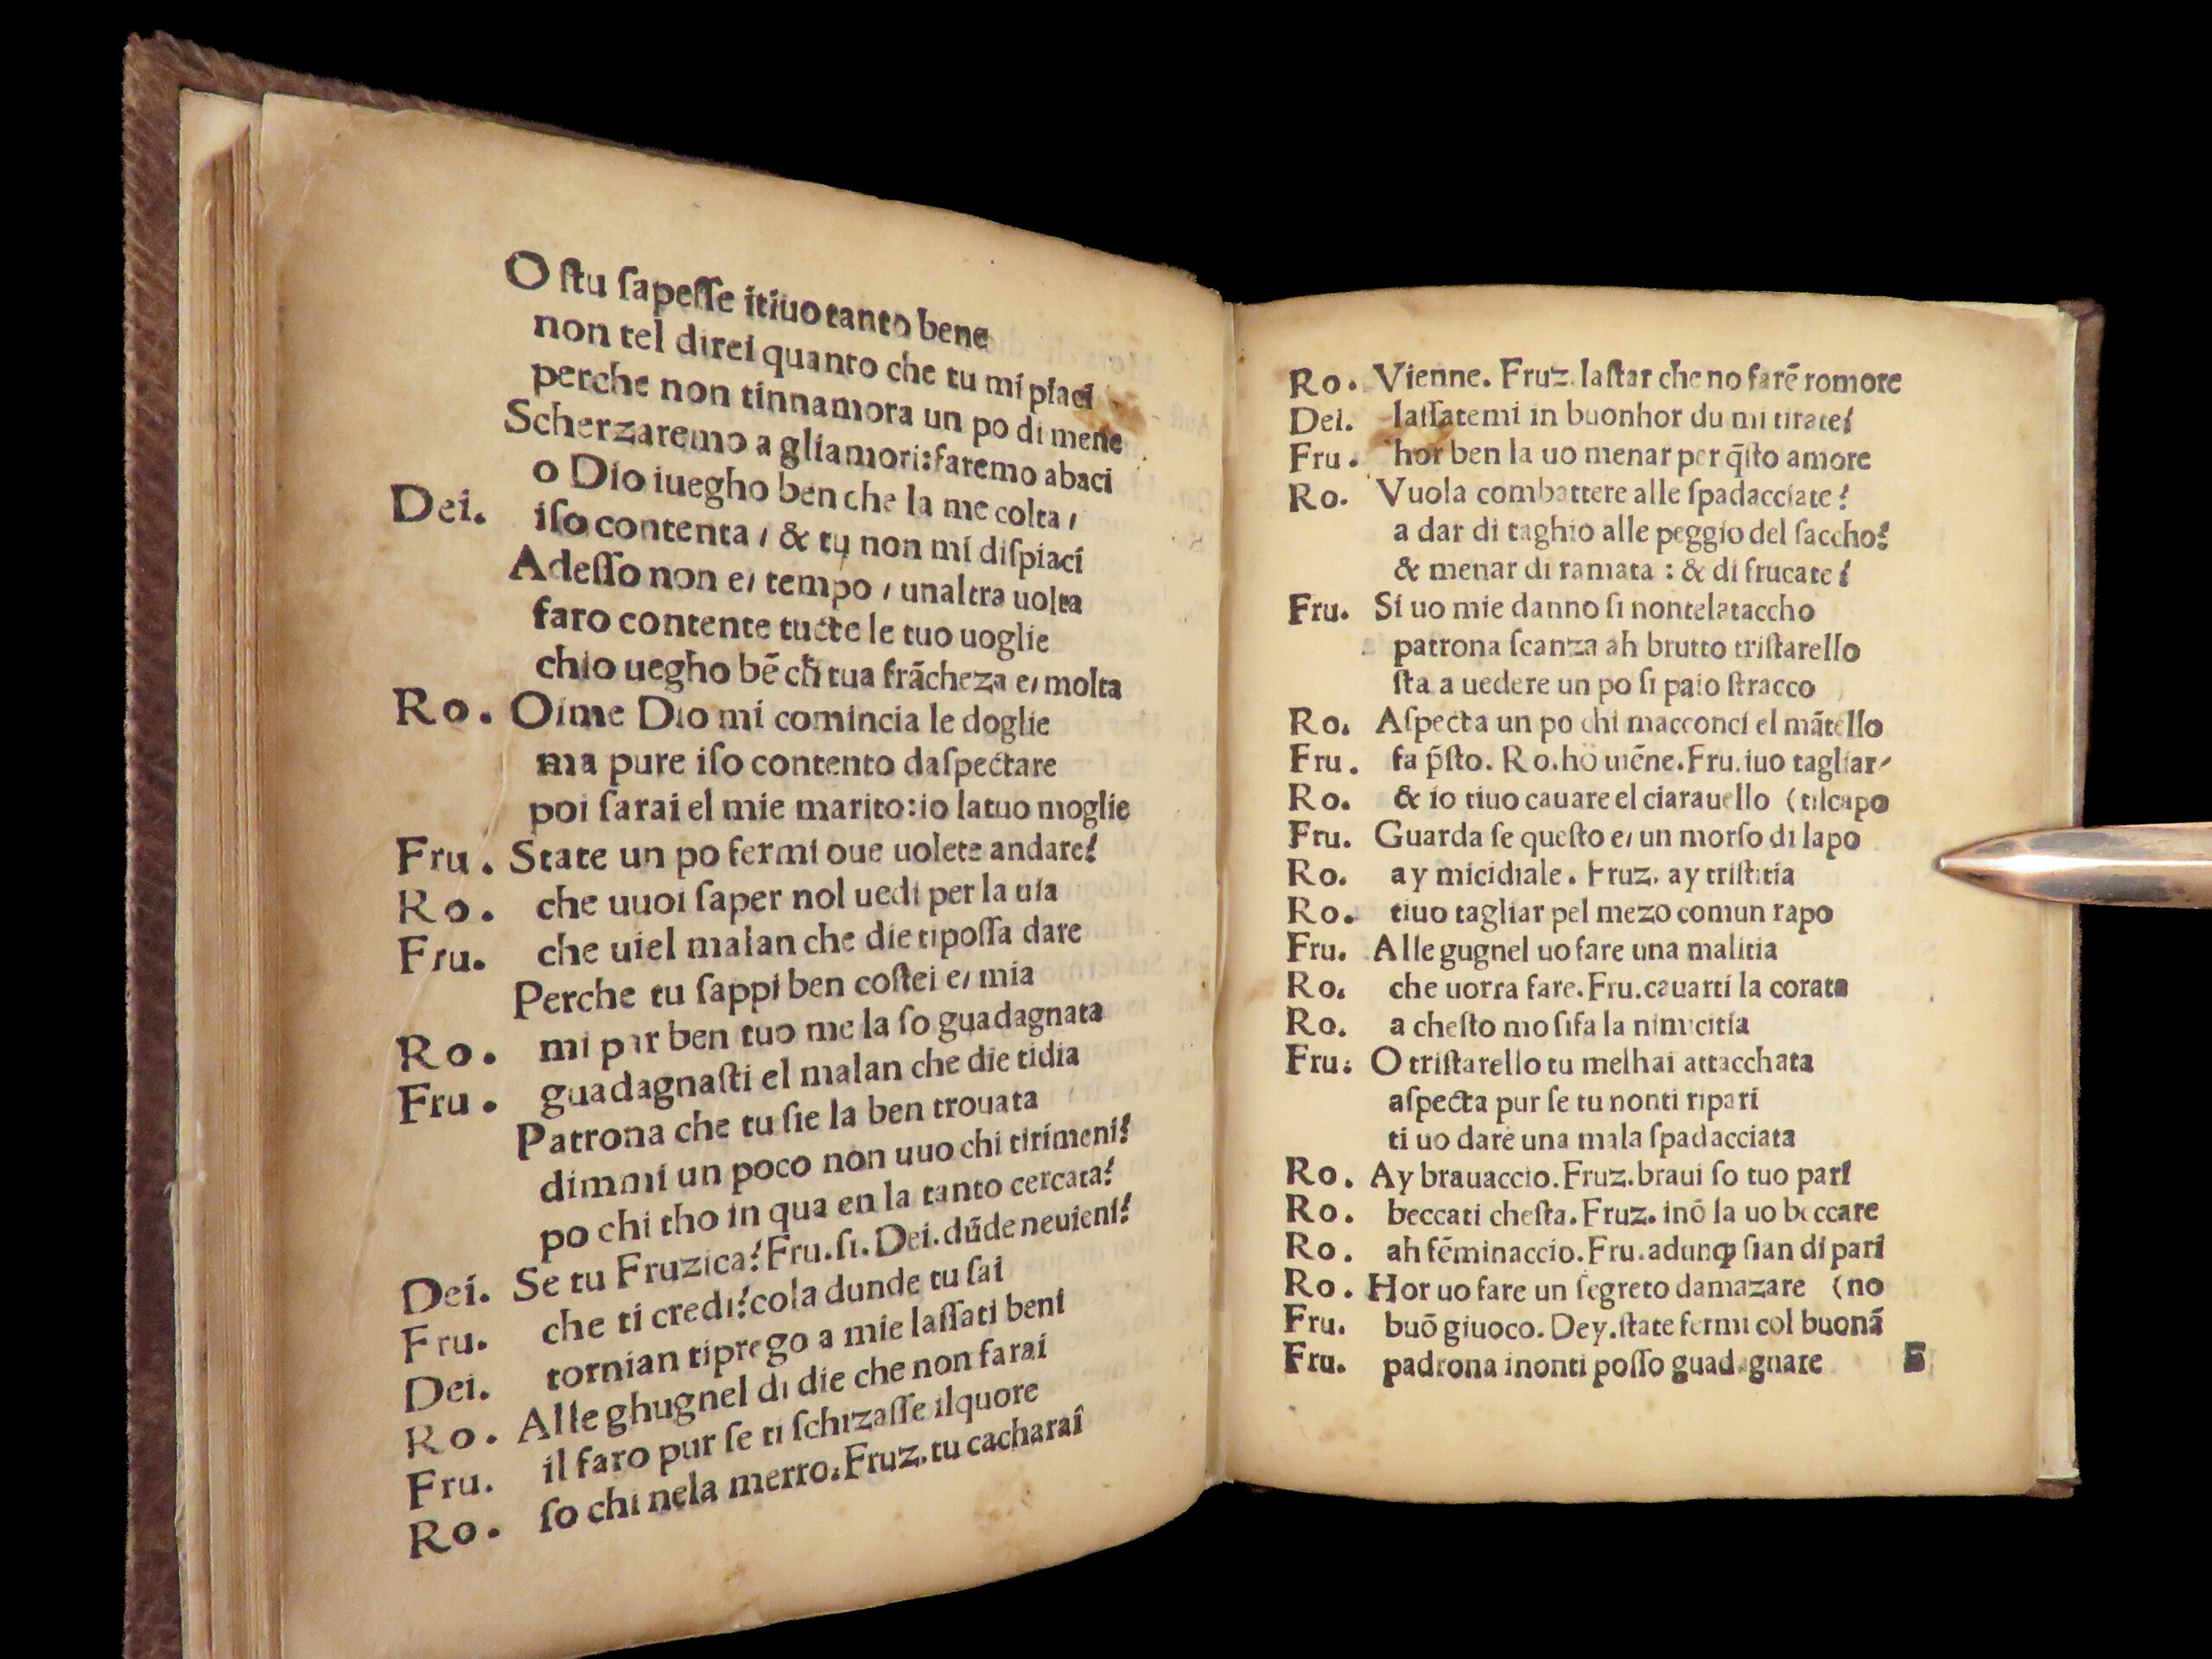 O ſtu ſapeſſe itiuo tanto bene
non tel direi quanto che tu mi piaci
perche non tinnamora un po di mene
Scherzaremo a gliamori:faremo abaci
o Dio iuegho ben che la me colta /
Dei. iſo contenta / & tu non mi diſpiaci
Adeſſo non e/ tempo / unaltra uolta
faro contente tucte le tuo uoglie
chio uegho bē cħ tua frācheza e/ molta
Ro. Oime Dio mi comincia le doglie
ma pure iſo contento daſpectare
poi ſarai el mie marito:io latuo moglie
Fru. State un po fermi oue uolete andare?
Ro. che uuoi ſaper nol uedi per la uia
Fru. che uiel malan che die tipoſſa dare
Perche tu ſappi ben coſtei e/ mia
Ro. mi par ben tuo me la ſo guadagnata
Fru. guadagnaſti el malan che die tidia
Patrona che tu ſie la ben trouata
dimmi un poco non uuo chi tirimeni?
po chi tho in qua en la tanto cercata?
Dei. Se tu Fruzica? Fru.ſi. Dei.dūde neuieni?
Fru. che ti credi?cola dunde tu ſai
Dei. tornian tiprego a mie laſſati beni
Ro. Alle ghugnel di die che non farai
Fru. il faro pur ſe ti ſchizaſſe ilquore
Ro. ſo chi nela merro.Fruz.tu cacharai
Ro. Vienne. Fruz.laſtar che no farē romore
Dei. laſſatemi in buonhor du mi tirate?
Fru. hor ben la uo menar per q̄ſto amore
Ro. Vuola combattere alle ſpadacciate?
a dar di taghio alle peggio del ſaccho?
& menar di ramata : & di frucate?
Fru. Si uo mie danno ſi nontelataccho
patrona ſcanza ah brutto triſtarello
ſta a uedere un po ſi paio ſtracco
Ro. Aſpecta un po chi macconci el mātello
Fru. fa p̄ſto. Ro.ho uiēne.Fru.iuo tagliar-
Ro. & io tiuo cauare el ciarauello (tilcapo
Fru. Guarda ſe queſto e/ un morſo di lapo
Ro. ay micidiale. Fruz. ay triſtitia
Ro. tiuo tagliar pel mezo comun rapo
Fru. Alle gugnel uo fare una malitia
Ro. che uorra fare.Fru.cauarti la corata
Ro. a cheſto mo ſifa la nimicitia
Fru. O triſtarello tu melhai attacchata
aſpecta pur ſe tu nonti ripari
ti uo dare una mala ſpadacciata
Ro. Ay brauaccio.Fruz.braui ſo tuo pari
Ro. beccati cheſta.Fruz.inō la uo beccare
Ro. ah fēminaccio.Fru.adunqꝫ ſian di pari
Ro. Hor uo fare un ſegreto damazare (no
Fru. buō giuoco. Dey.ſtate fermi col buonā
Fru. padrona inonti poſſo guadagnare